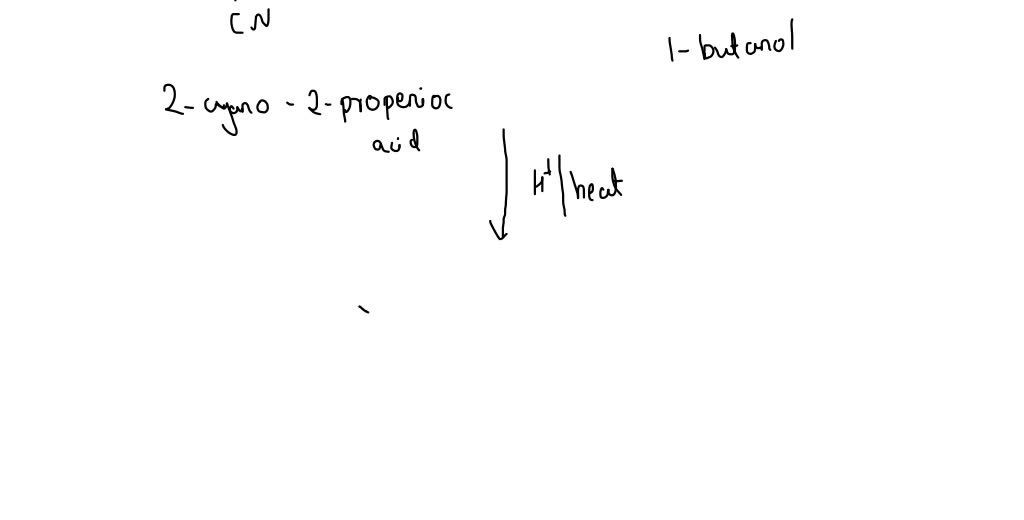 CN
1-butanol
2-cyano-2-propenioc
acid
H+/heat